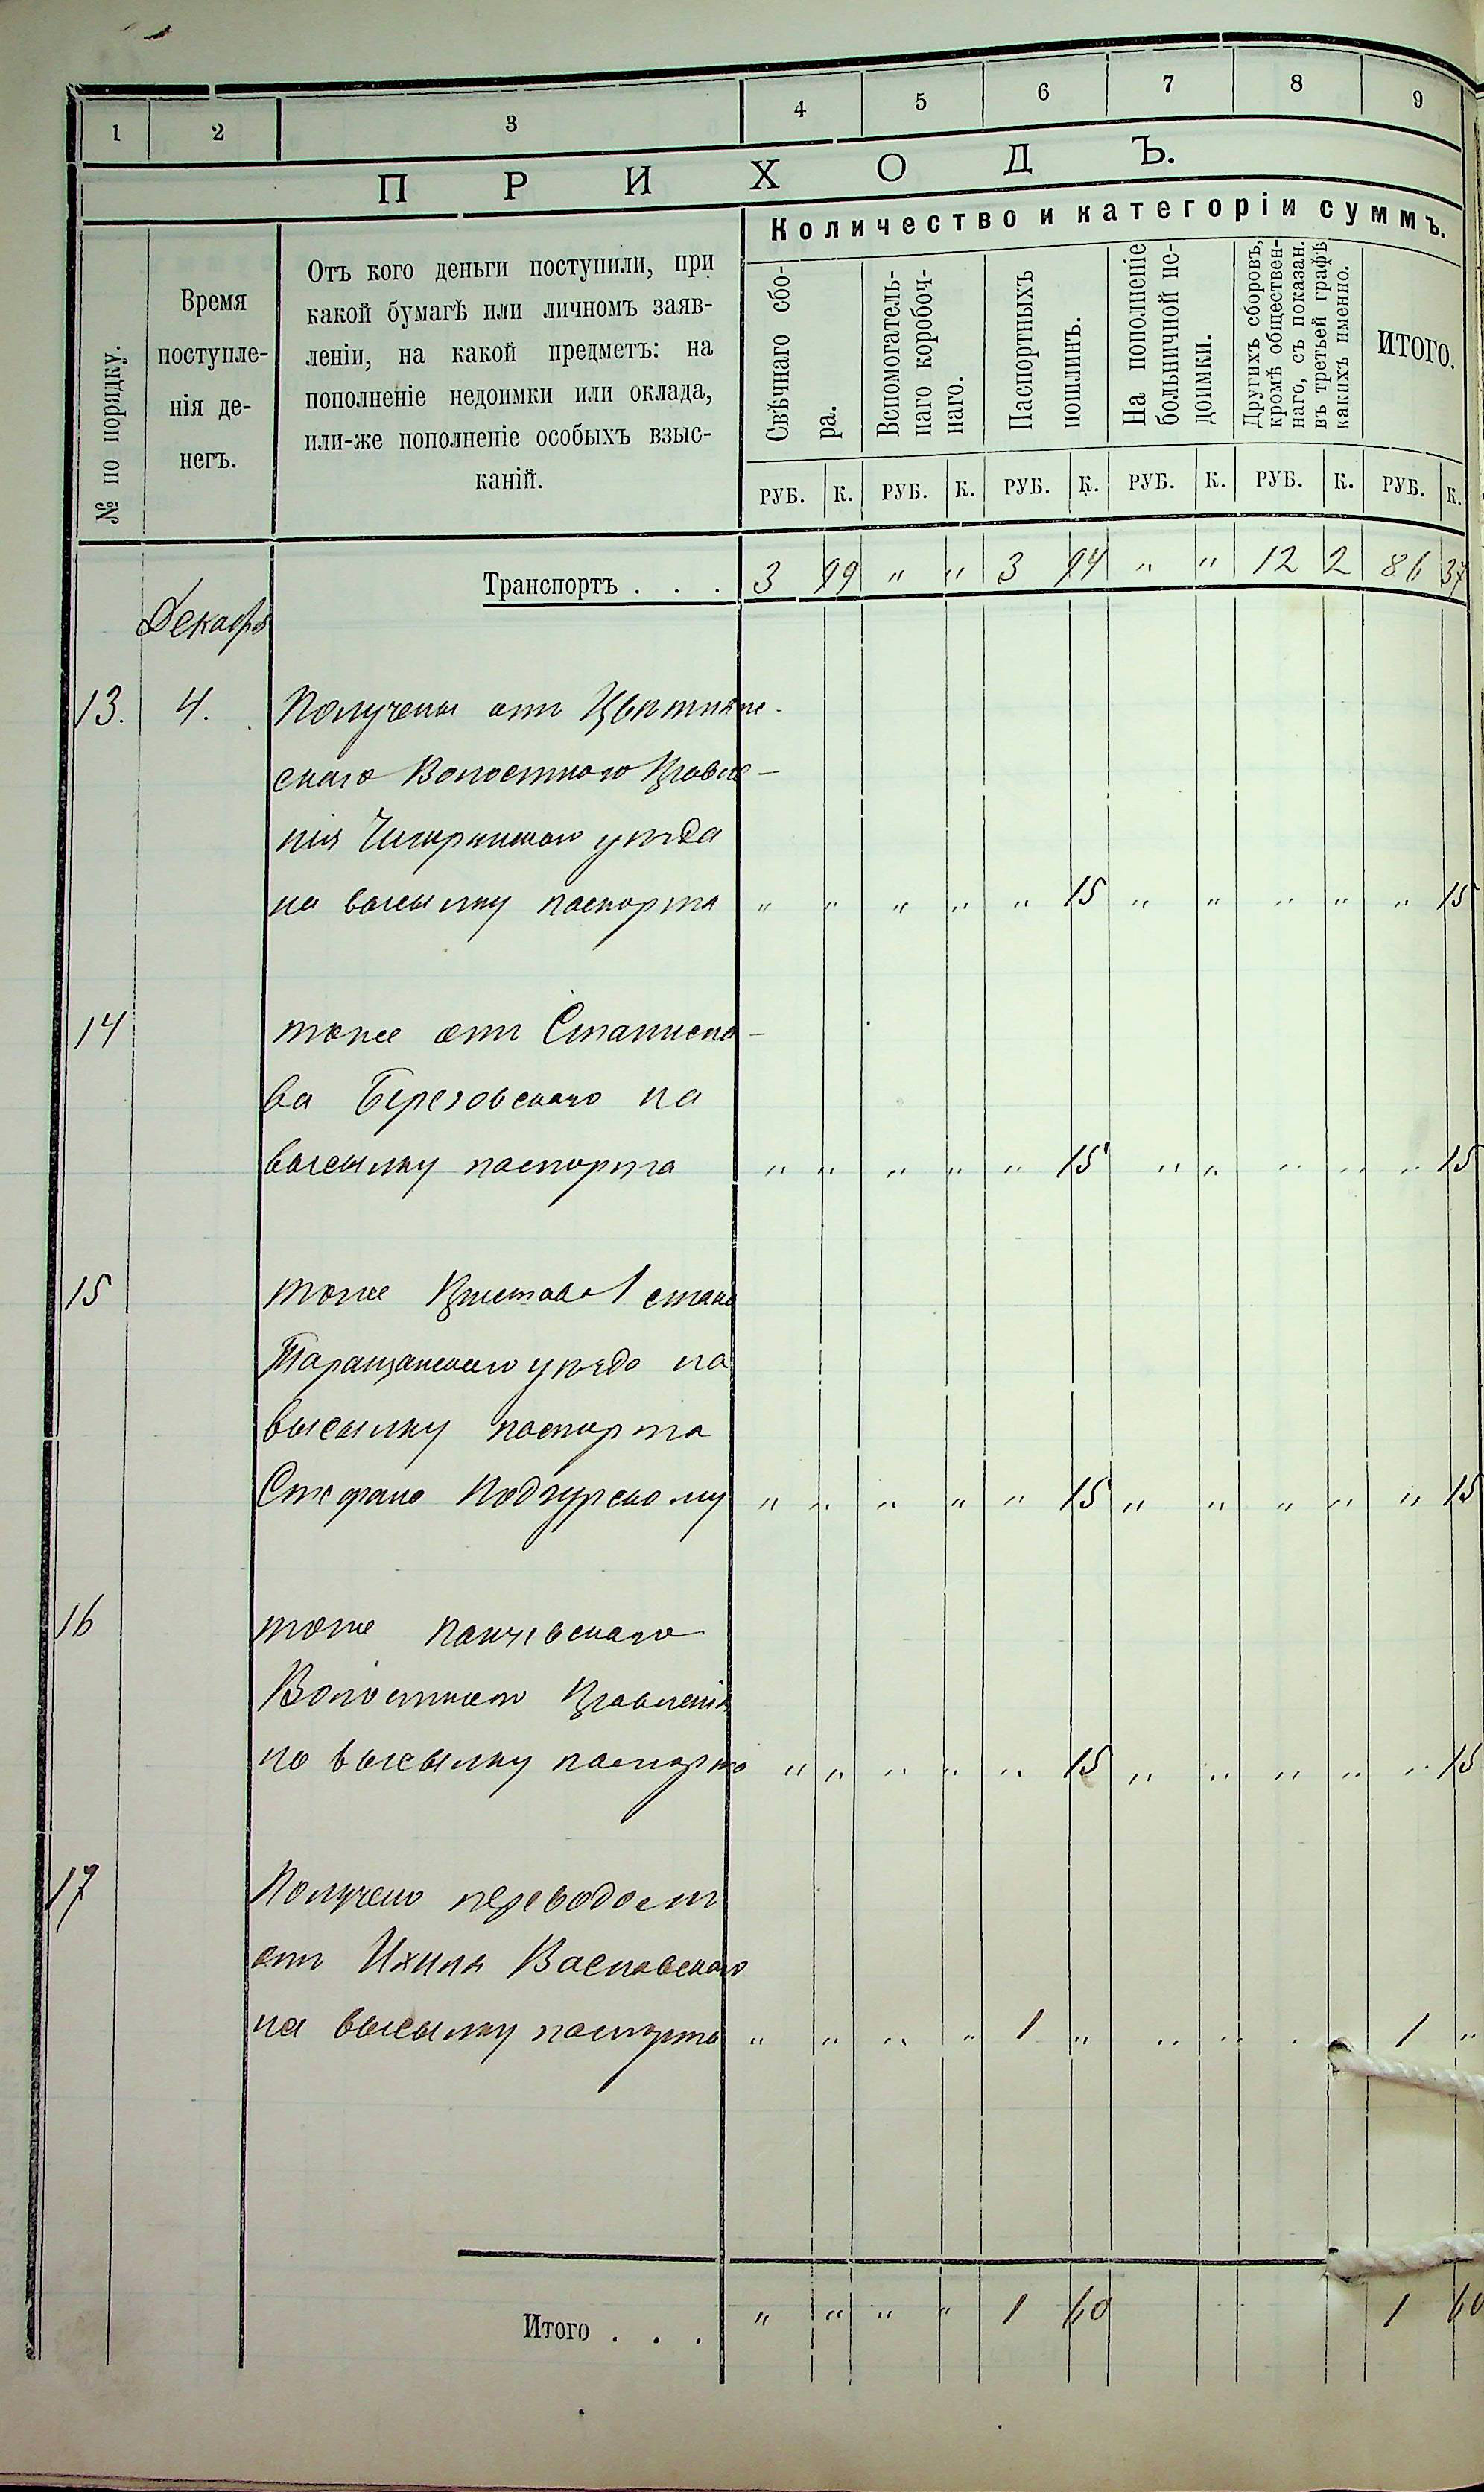 1 2 3 4 5 6 7 8 9
ПРИХОДЪ.
Количество и категоріи суммъ.
№ по порядку.
Время
поступле-
нія де-
негъ.
Отъ кого деньги поступили, при
какой бумагѣ или личномъ заяв-
леніи, на какой предметъ: на
пополненіе недоимки или оклада,
или-же пополненіе особыхъ взыс-
каній.
Свѣчнаго сбо-
ра.
Вспомогатель-
наго коробоч-
наго.
Паспортныхъ
пошлинъ.
На пополненіе
больничной не-
доимки.
Другихъ сборовъ,
кромѣ обществен-
наго, съ показан.
въ третьей графѣ
какихъ именно.
ИТОГО.
РУБ. К. РУБ. К. РУБ. К. РУБ. К. РУБ. К. РУБ. К.
Транспортъ . . . 3 99 " " 3 94 " " 12 2 86 37
Декабря
13. 4. Получены отъ
скаго Волостного Правле-
нія Чигиринскаго уѣзда
на высылку паспорта " " " " " 15 " " " " " 15
14 тоже отъ Станисла-
ва Березовскаго на
высылку паспорта " " " " " 15 " " " " " 15
15 тоже Пристава 1 стана
Таращанскаго уѣзда на
высылку паспорта
Стефана Подгурскому " " " " " 15 " " " " " 15
16 тоже
Волостного Правленія
на высылку паспорта " " " " " 15 " " " " " 15
17 Получено переводомъ
отъ
на высылку паспорта " " " " 1 " " " " 1 "
Итого . . . " " " " 1 60 1 60